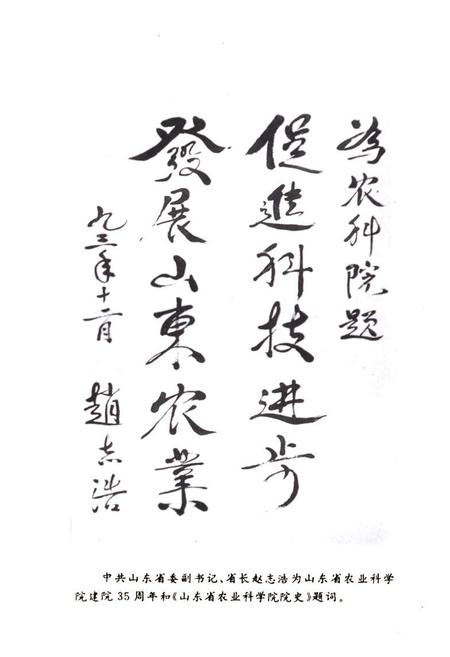 为农科院题
促進科技进步
發展山東农業
九三年十二月 趙志浩
中共山东省委副书记、省长赵志浩为山东省农业科学
院建院35周年和《山东省农业科学院院史》题词。